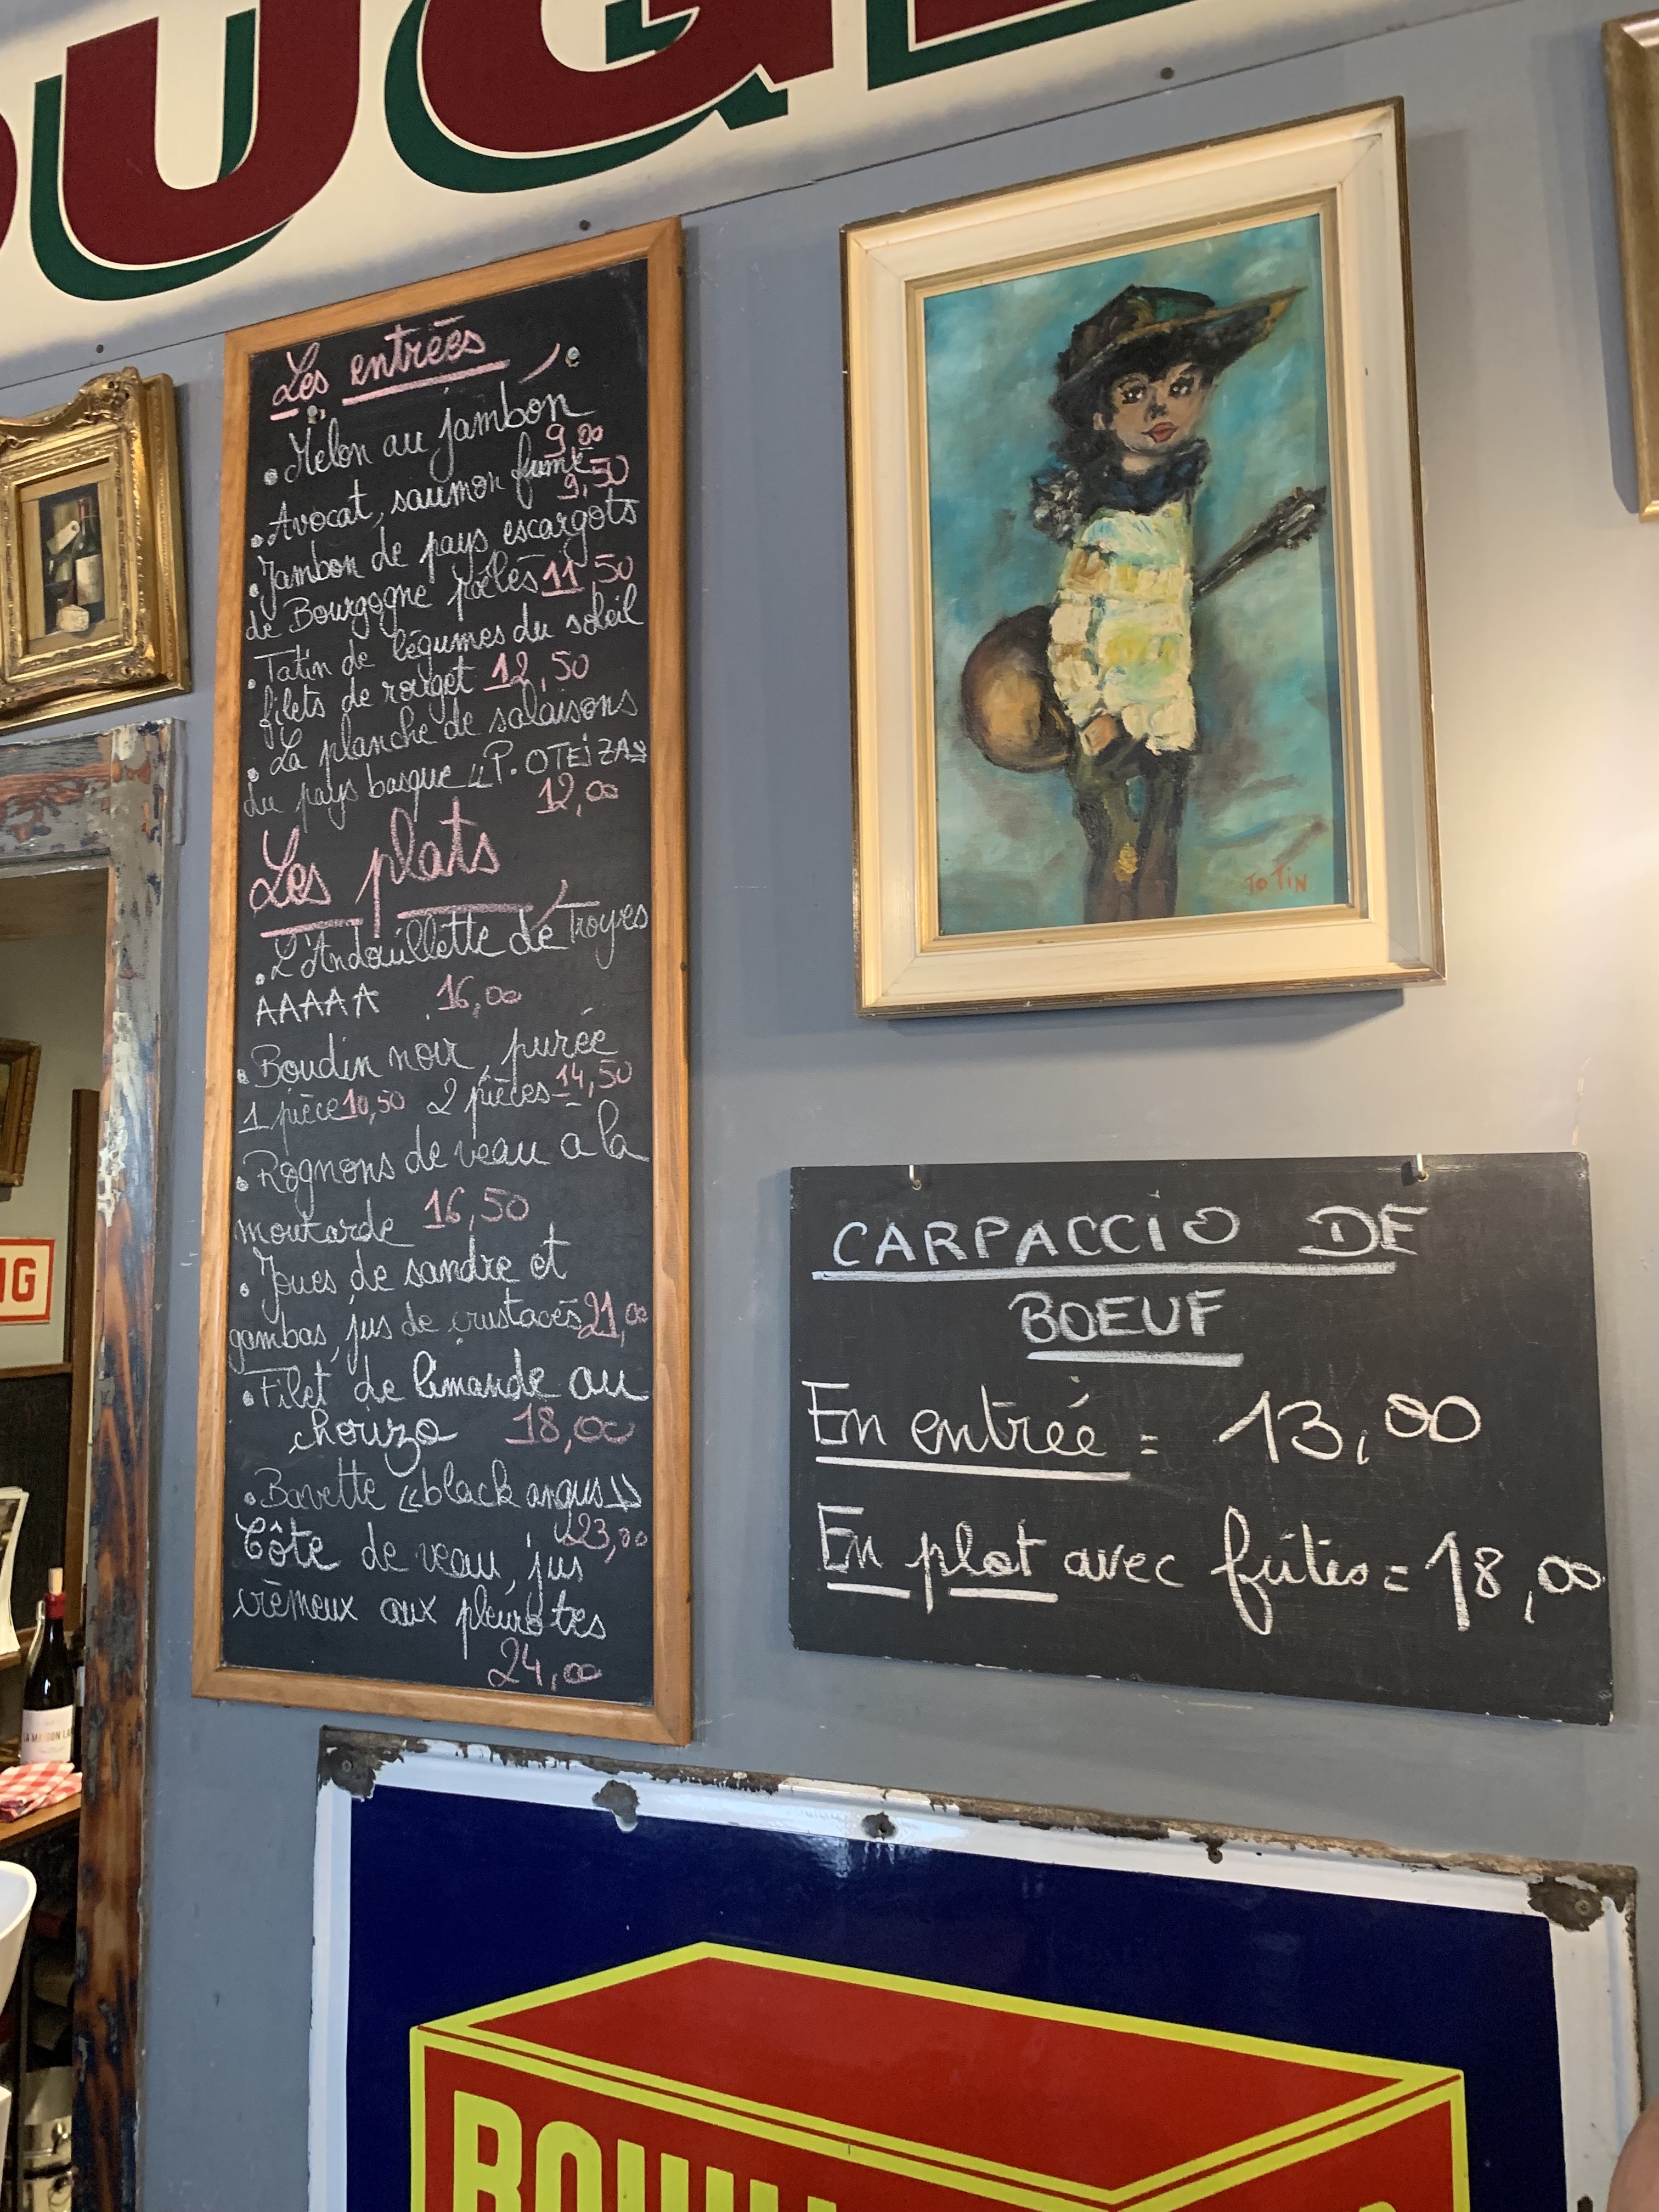 Les entrées
• Melon au jambon
9,00
• Avocat, saumon fumé
9,50
• Jambon de pays escargots
de Bourgogne poêlés 11,50
• Tatin de légumes du soleil
filets de rouget 12,50
• La planche de salaisons
du pays basque "P. OTEIZA"
12,00
Les plats
• L'Andouillette de Troyes
AAAAA 16,00
• Boudin noir, purée
1 pièce 10,50 2 pièces 14,50
• Rognons de veau à la
moutarde 16,50
• Joues de sandre et
gambas, jus de crustacés 21,00
• Filet de limande au
chorizo 18,00
• Bavette «black angus»
23,00
Côte de veau, jus
crèmeux aux pleurotes
24,00
TOTIN
CARPACCIO DE
BOEUF
En entrée = 13,00
En plat avec frites = 18,00